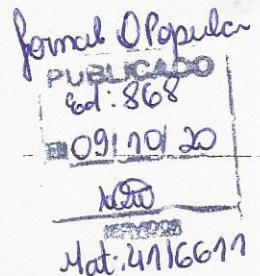 Jornal O Popular
PUBLICADO
Ed: 868
EM 09/10/20
SERVIDOR
Mat: 4116611